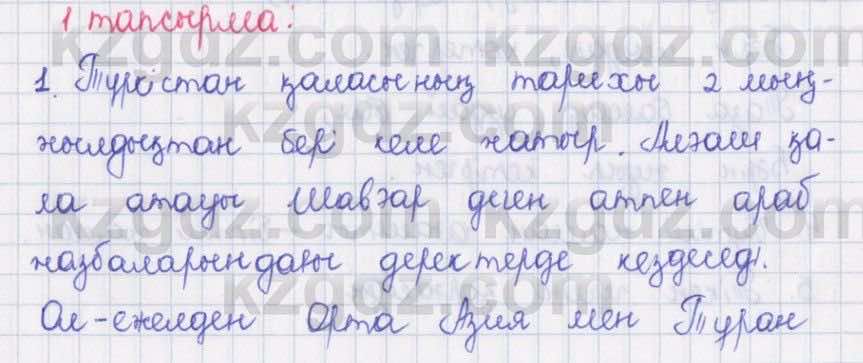 1 тапсырма:
1. Түркістан қаласының тарихы 2 мың-
жылдықтан бері келе жатыр. Алғаш қа-
ла атауы Шавғар деген атпен араб
жазбаларындағы деректерде кездеседі.
Ол-ежелден Орта Азия мен Тұран
kzgdz.com kzgdz.com
kzgdz.com kzgdz.com
kzgdz.com kzgdz.com